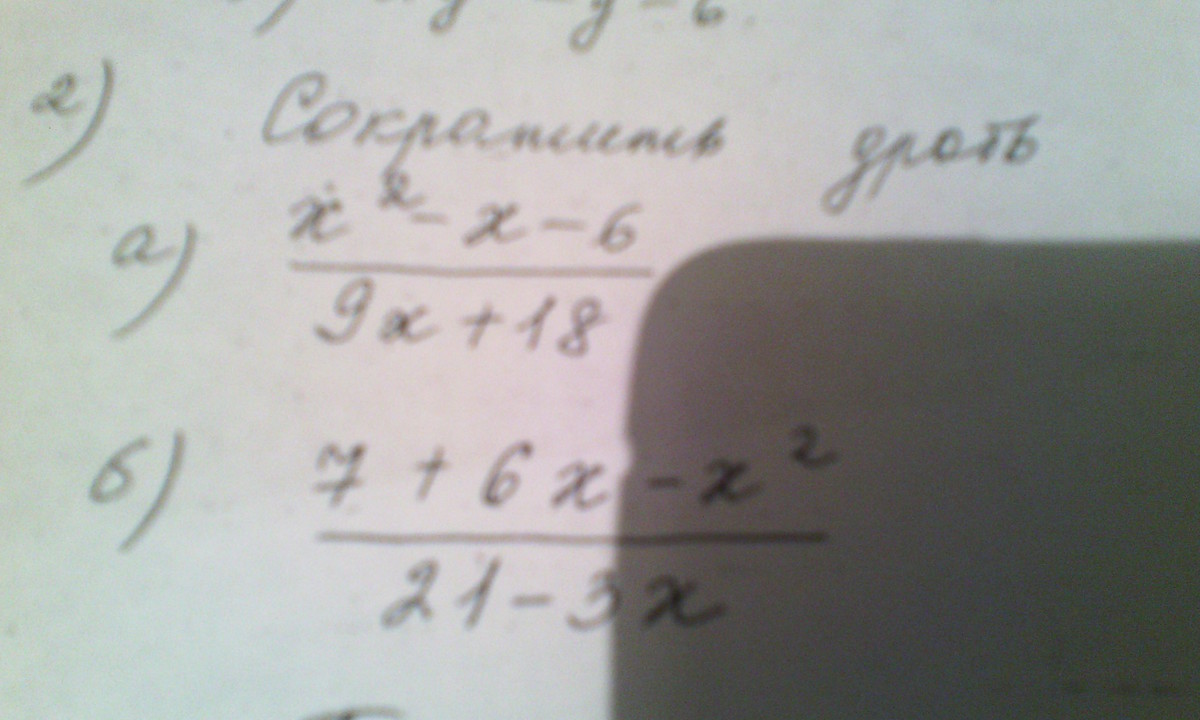 2) Сократить дробь
а) x² - x - 6
9x + 18
б) 7 + 6x - x²
21 - 3x